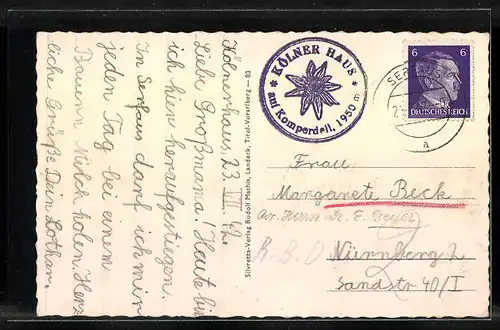 Kölnerhaus, 23. VIII. 42.
Liebe Großmama! Heute bin
ich hier heraufgestiegen.
In Serfaus darf ich mir
jeden Tag bei einem
Bauern Milch holen. Herz-
liche Grüße Dein Lothar.
Silvretta-Verlag Rudolf Mathis, Landeck, Tirol-Vorarlberg — 83
* KÖLNER HAUS *
auf Komperdell, 1950 m
SERFAUS
a
6 6
DEUTSCHES REICH
Frau
Margarete Beck
Adr. Herrn Dr. E. Beyer
R. B. D. Nürnberg 2
Sandstr 40/I